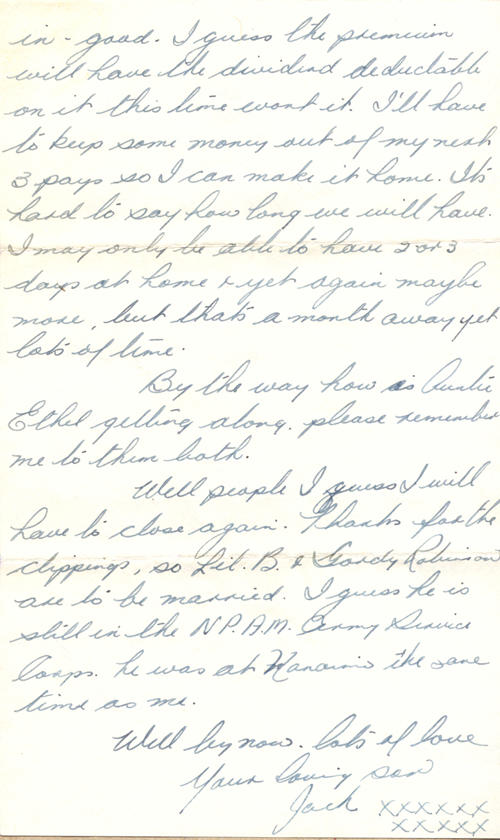 in - good. I guess the premium
will have the dividend deductable
on it this time wont it. I'll have
to keep some money out of my next
3 pays so I can make it home. Its
hard to say how long we will have.
I may only be able to have 2 or 3
days at home & yet again maybe
more, but thats a month away yet
lots of time.
By the way how is Auntie
Ethel getting along. please remember
me to them both.
Well people I guess I will
have to close again. Thanks for the
clippings, so Lil. B. & Gordy Robinson
are to be married. I guess he is
still in the N.P.A.M. Army Service
Corps. he was at Nanaimo the same
time as me.
Well by now. lots of love
Your loving son
Jack xxxxxx
xxxxx